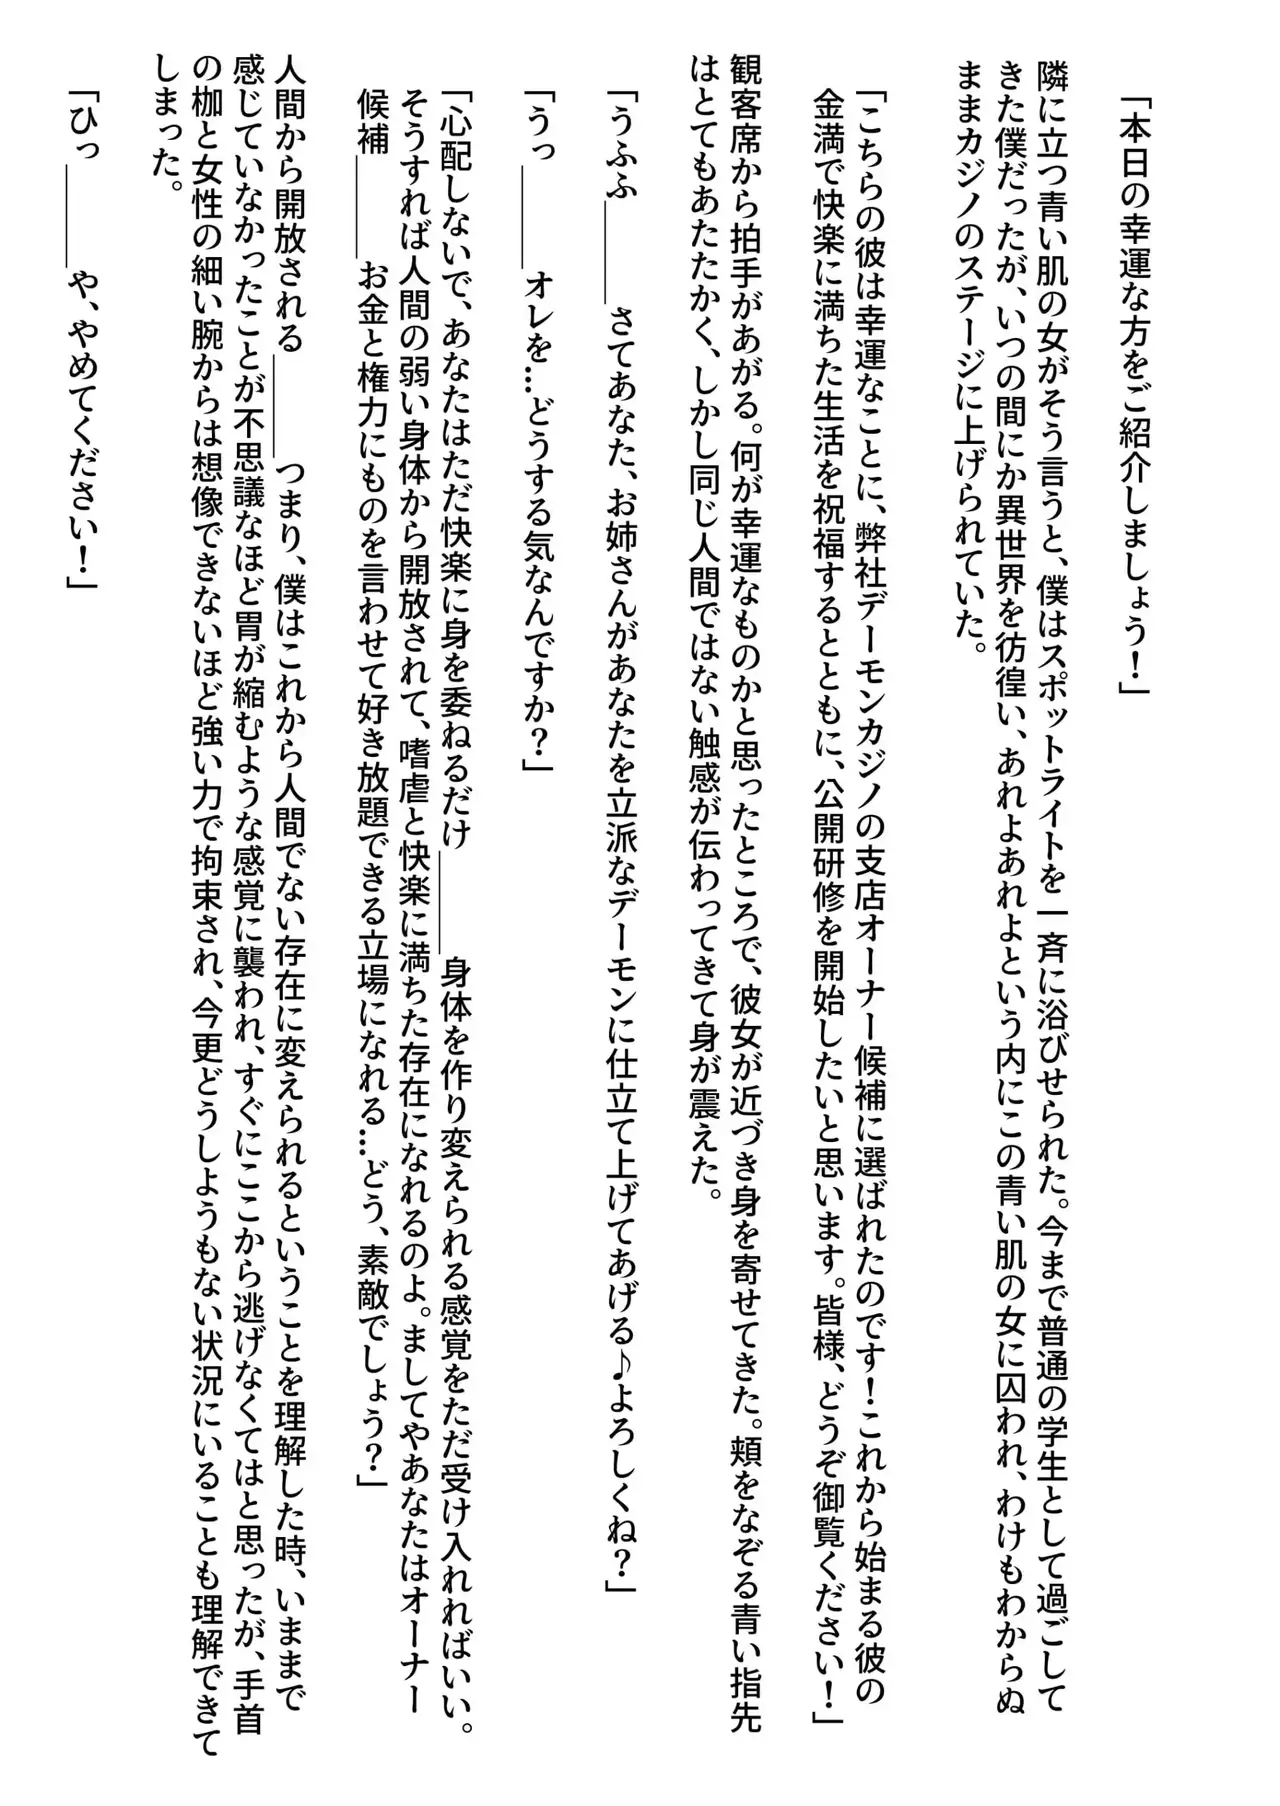 「本日の幸運な方をご紹介しましょう！」
隣に立つ青い肌の女がそう言うと、僕はスポットライトを一斉に浴びせられた。今まで普通の学生として過ごして
きた僕だったが、いつの間にか異世界を彷徨い、あれよあれよという内にこの青い肌の女に囚われ、わけもわからぬ
ままカジノのステージに上げられていた。
「こちらの彼は幸運なことに、弊社デーモンカジノの支店オーナー候補に選ばれたのです！これから始まる彼の
金満で快楽に満ちた生活を祝福するとともに、公開研修を開始したいと思います。皆様、どうぞ御覧ください！」
観客席から拍手があがる。何が幸運なものかと思ったところで、彼女が近づき身を寄せてきた。頬をなぞる青い指先
はとてもあたたかく、しかし同じ人間ではない触感が伝わってきて身が震えた。
「うふふ＿＿＿さてあなた、お姉さんがあなたを立派なデーモンに仕立て上げてあげる♪よろしくね？」
「うっ＿＿＿オレを…どうする気なんですか？」
「心配しないで、あなたはただ快楽に身を委ねるだけ＿＿＿身体を作り変えられる感覚をただ受け入れればいい。
そうすれば人間の弱い身体から開放されて、嗜虐と快楽に満ちた存在になれるのよ。ましてやあなたはオーナー
候補＿＿＿お金と権力にものを言わせて好き放題できる立場になれる…どう、素敵でしょう？」
人間から開放される＿＿＿つまり、僕はこれから人間でない存在に変えられるということを理解した時、いままで
感じていなかったことが不思議なほど胃が縮むような感覚に襲われ、すぐにここから逃げなくてはと思ったが、手首
の枷と女性の細い腕からは想像できないほど強い力で拘束され、今更どうしようもない状況にいることも理解できて
しまった。
「ひっ＿＿＿や、やめてください！」